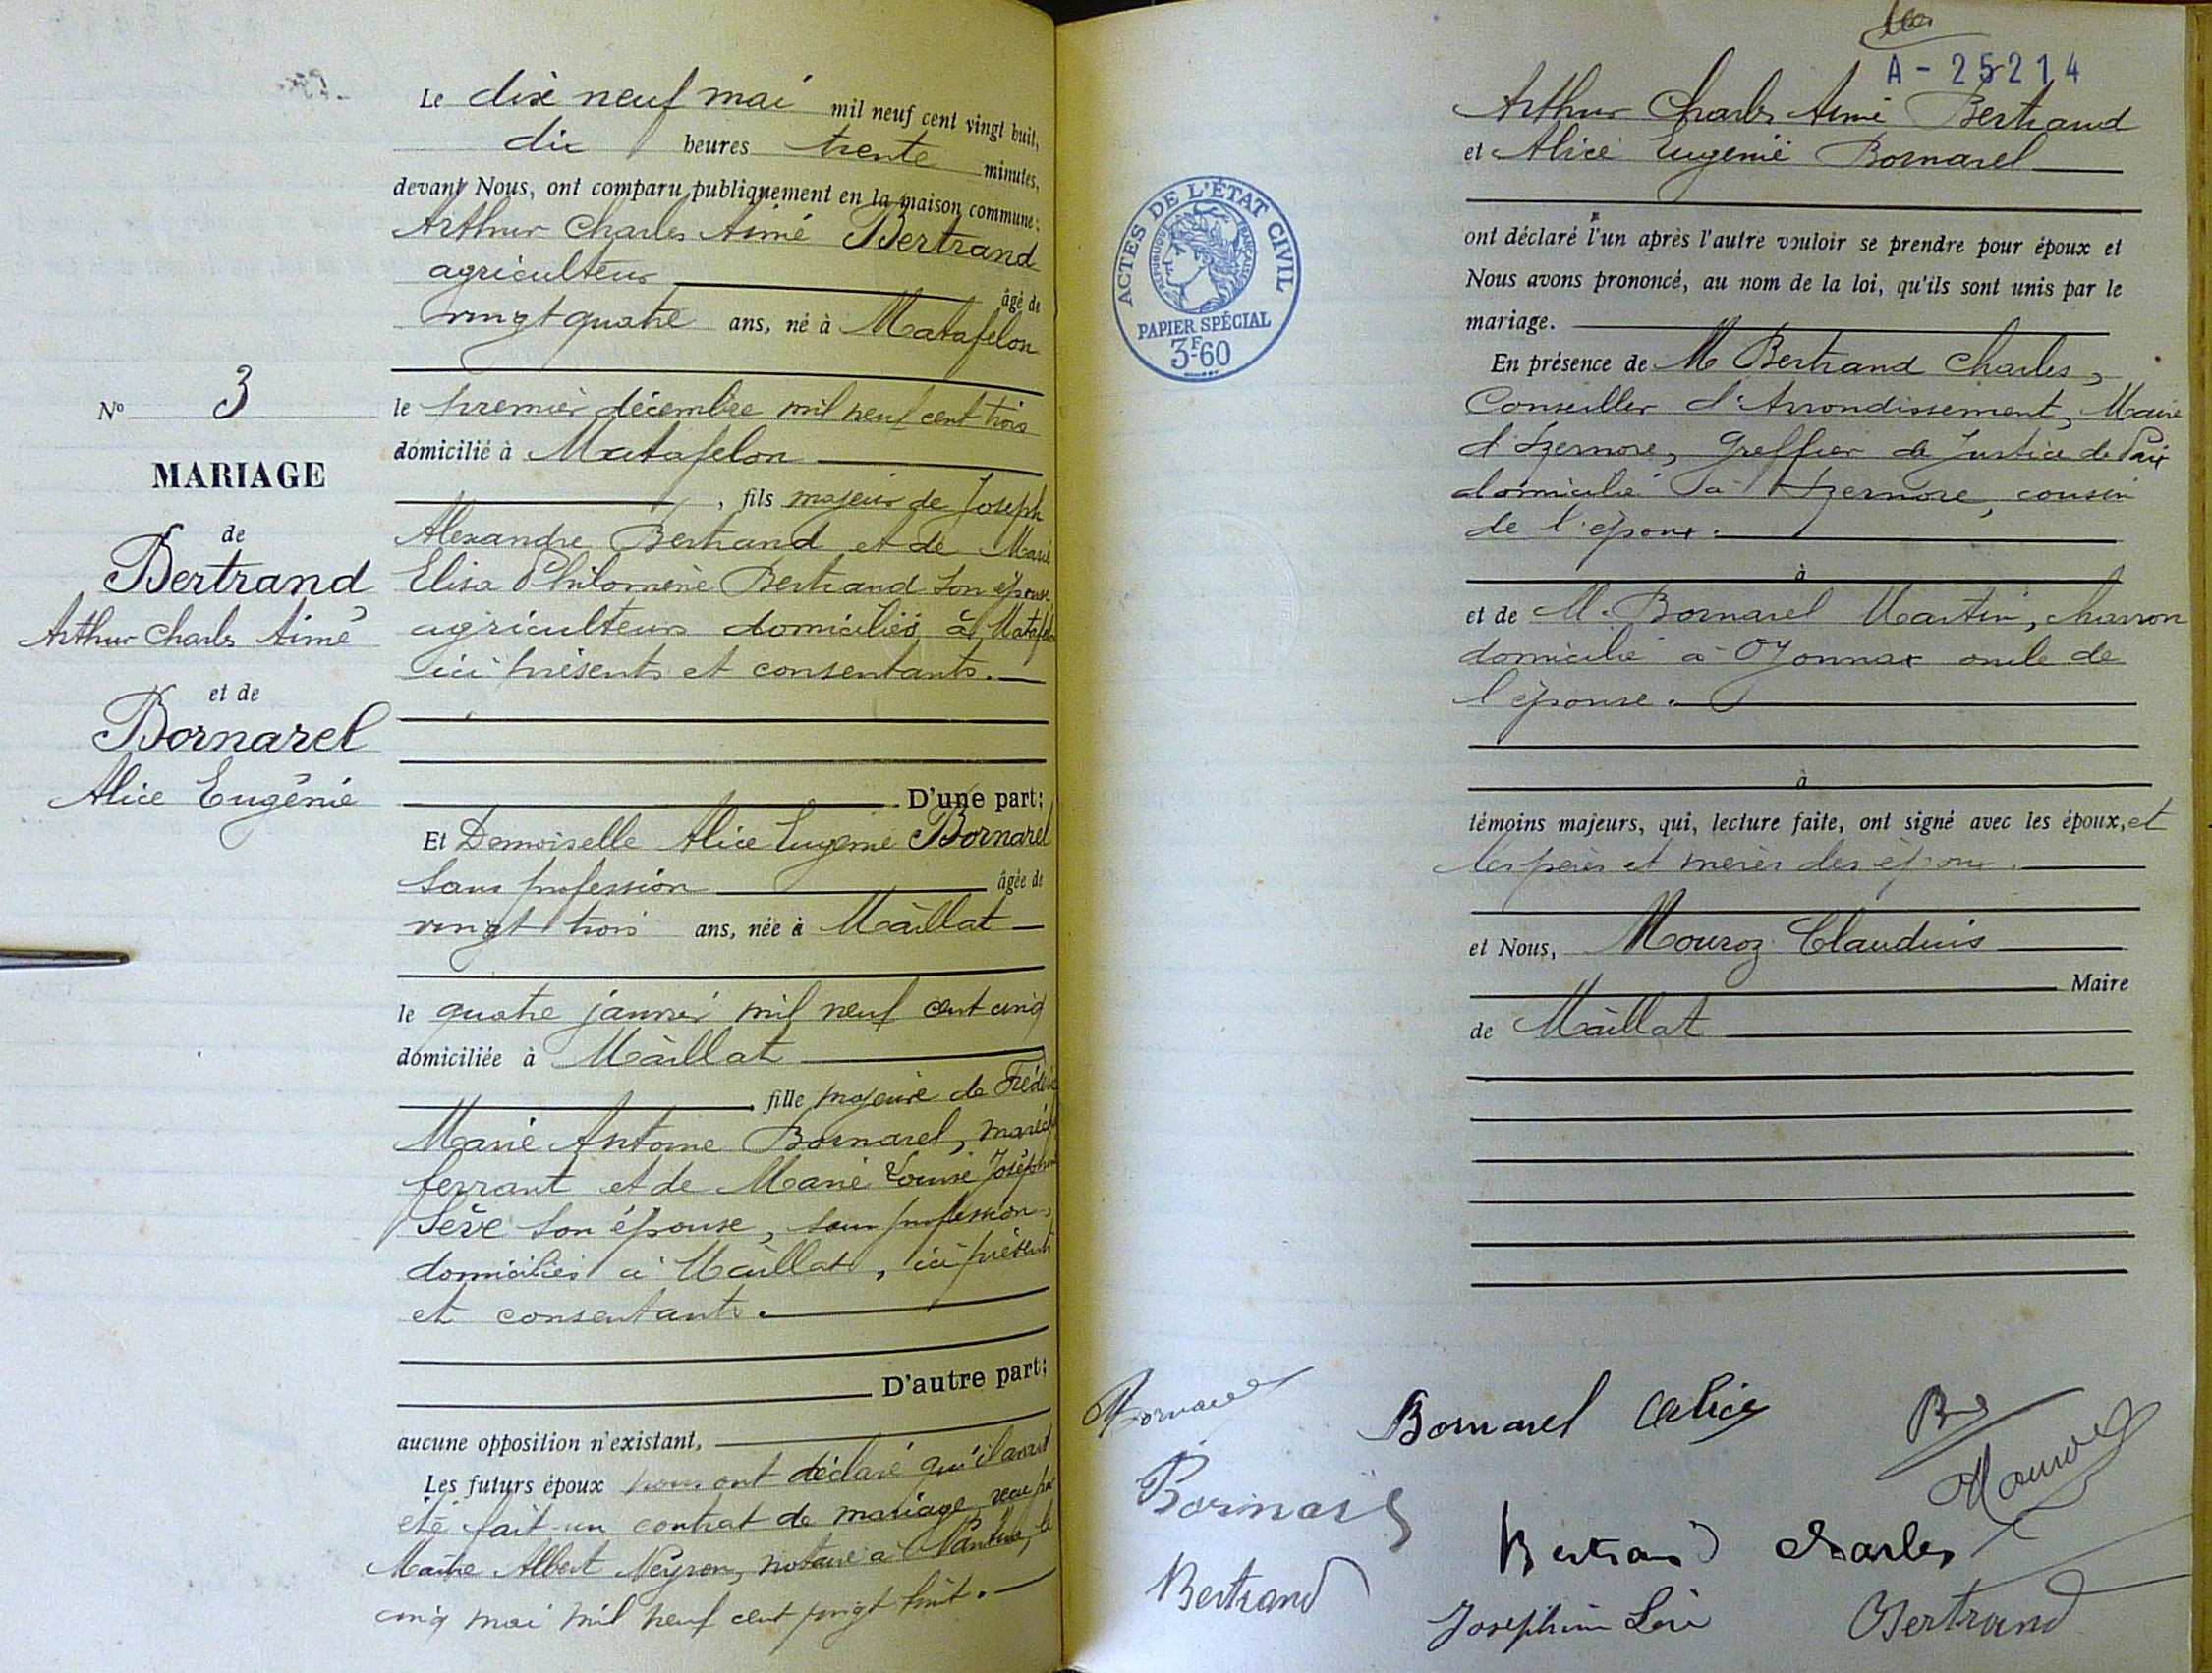 N° 3
MARIAGE
de
Bertrand
Arthur Charles Aimé
et de
Bornarel
Alice Eugénie
Le dix neuf mai mil neuf cent vingt huit,
dix heures trente minutes,
devant Nous, ont comparu publiquement en la maison commune:
Arthur Charles Aimé Bertrand
agriculteur âgé de
vingt quatre ans, né à Matafelon
le premier décembre mil neuf cent trois
domicilié à Matafelon
, fils majeur de Joseph
Alexandre Bertrand et de Marie
Elisa Philomène Bertrand son épouse
agriculteurs domiciliés à Matafelon
ici présents et consentants.
D'une part;
Et Demoiselle Alice Eugénie Bornarel
sans profession âgée de
vingt trois ans, née à Maillat
le quatre janvier mil neuf cent cinq
domiciliée à Maillat
, fille majeure de Frédéric
Marie Antoine Bornarel, maréchal
ferrant et de Marie Louise Joséphine
Sève son épouse, sans profession,
domiciliés à Maillat, ici présents
et consentants.
D'autre part;
aucune opposition n'existant,
Les futurs époux nous ont déclaré qu'il avait
été fait un contrat de mariage reçu par
Maître Albert Neyron, notaire à Nantua, le
cinq mai mil neuf cent vingt huit.
A - 25214
Arthur Charles Aimé Bertrand
et Alice Eugénie Bornarel
ACTES DE L'ÉTAT CIVIL
RÉPUBLIQUE FRANÇAISE
PAPIER SPÉCIAL
3F.60
ont déclaré l'un après l'autre vouloir se prendre pour époux et
Nous avons prononcé, au nom de la loi, qu'ils sont unis par le
mariage.
En présence de M Bertrand Charles,
Conseiller d'Arrondissement, Maire
d'Izernore, Greffier de Justice de Paix
domicilié à Izernore, cousin
de l'époux.
à
et de M. Bornarel Martin, charron
domicilié à Oyonnax oncle de
l'épouse.
à
témoins majeurs, qui, lecture faite, ont signé avec les époux, et
les pères et mères des époux.
et Nous, Mouroz Claudius
Maire
de Maillat
Bornarel
Bornarel Alice
Mouroz
Bornarel
Bertrand Charles
Bertrand
Joséphine Sève
Bertrand